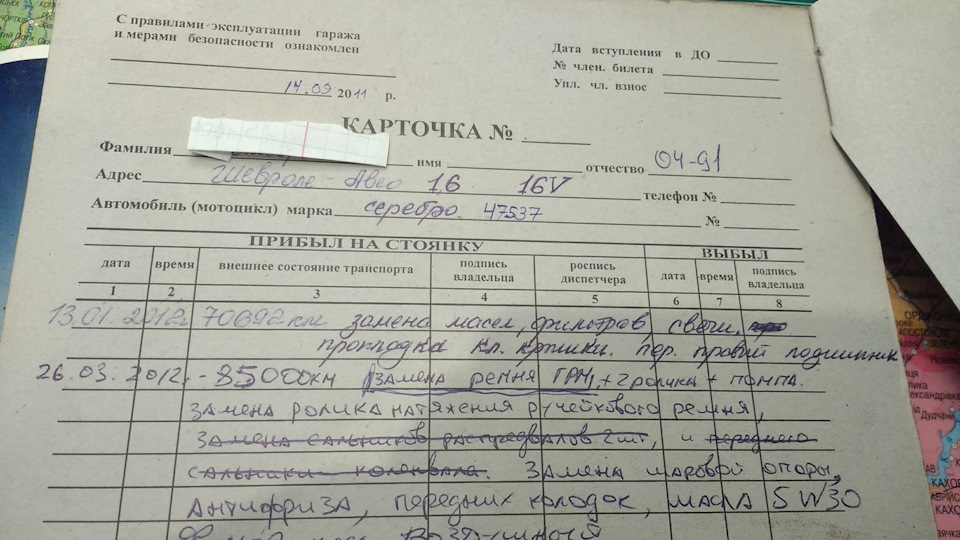 С правилами эксплуатации гаража
и мерами безопасности ознакомлен
14.09 2011 р.
Дата вступления в ДО
№ член. билета
Упл. чл. взнос
КАРТОЧКА №
Фамилия имя отчество 04-91
Адрес Шевроле - Авео 1.6 16V телефон №
Автомобиль (мотоцикл) марка серебро. 47537 №
ПРИБЫЛ НА СТОЯНКУ ВЫБЫЛ
дата время внешнее состояние транспорта подпись владельца роспись диспетчера дата время подпись владельца
1 2 3 4 5 6 7 8
13.01.2012г 70692 км замена масел, фильтров, свечи,
прокладка кл. крышки. пер. правий подшипник
26.03.2012. - 85000км замена ремня ГРМ, + 2 ролика + помпа.
замена ролика натяжения ручейкового ремня,
замена сальников распредвалов 2шт, и переднего
сальники коленвала. замена шаровой опоры,
антифриза, передних колодок, масла 5W30